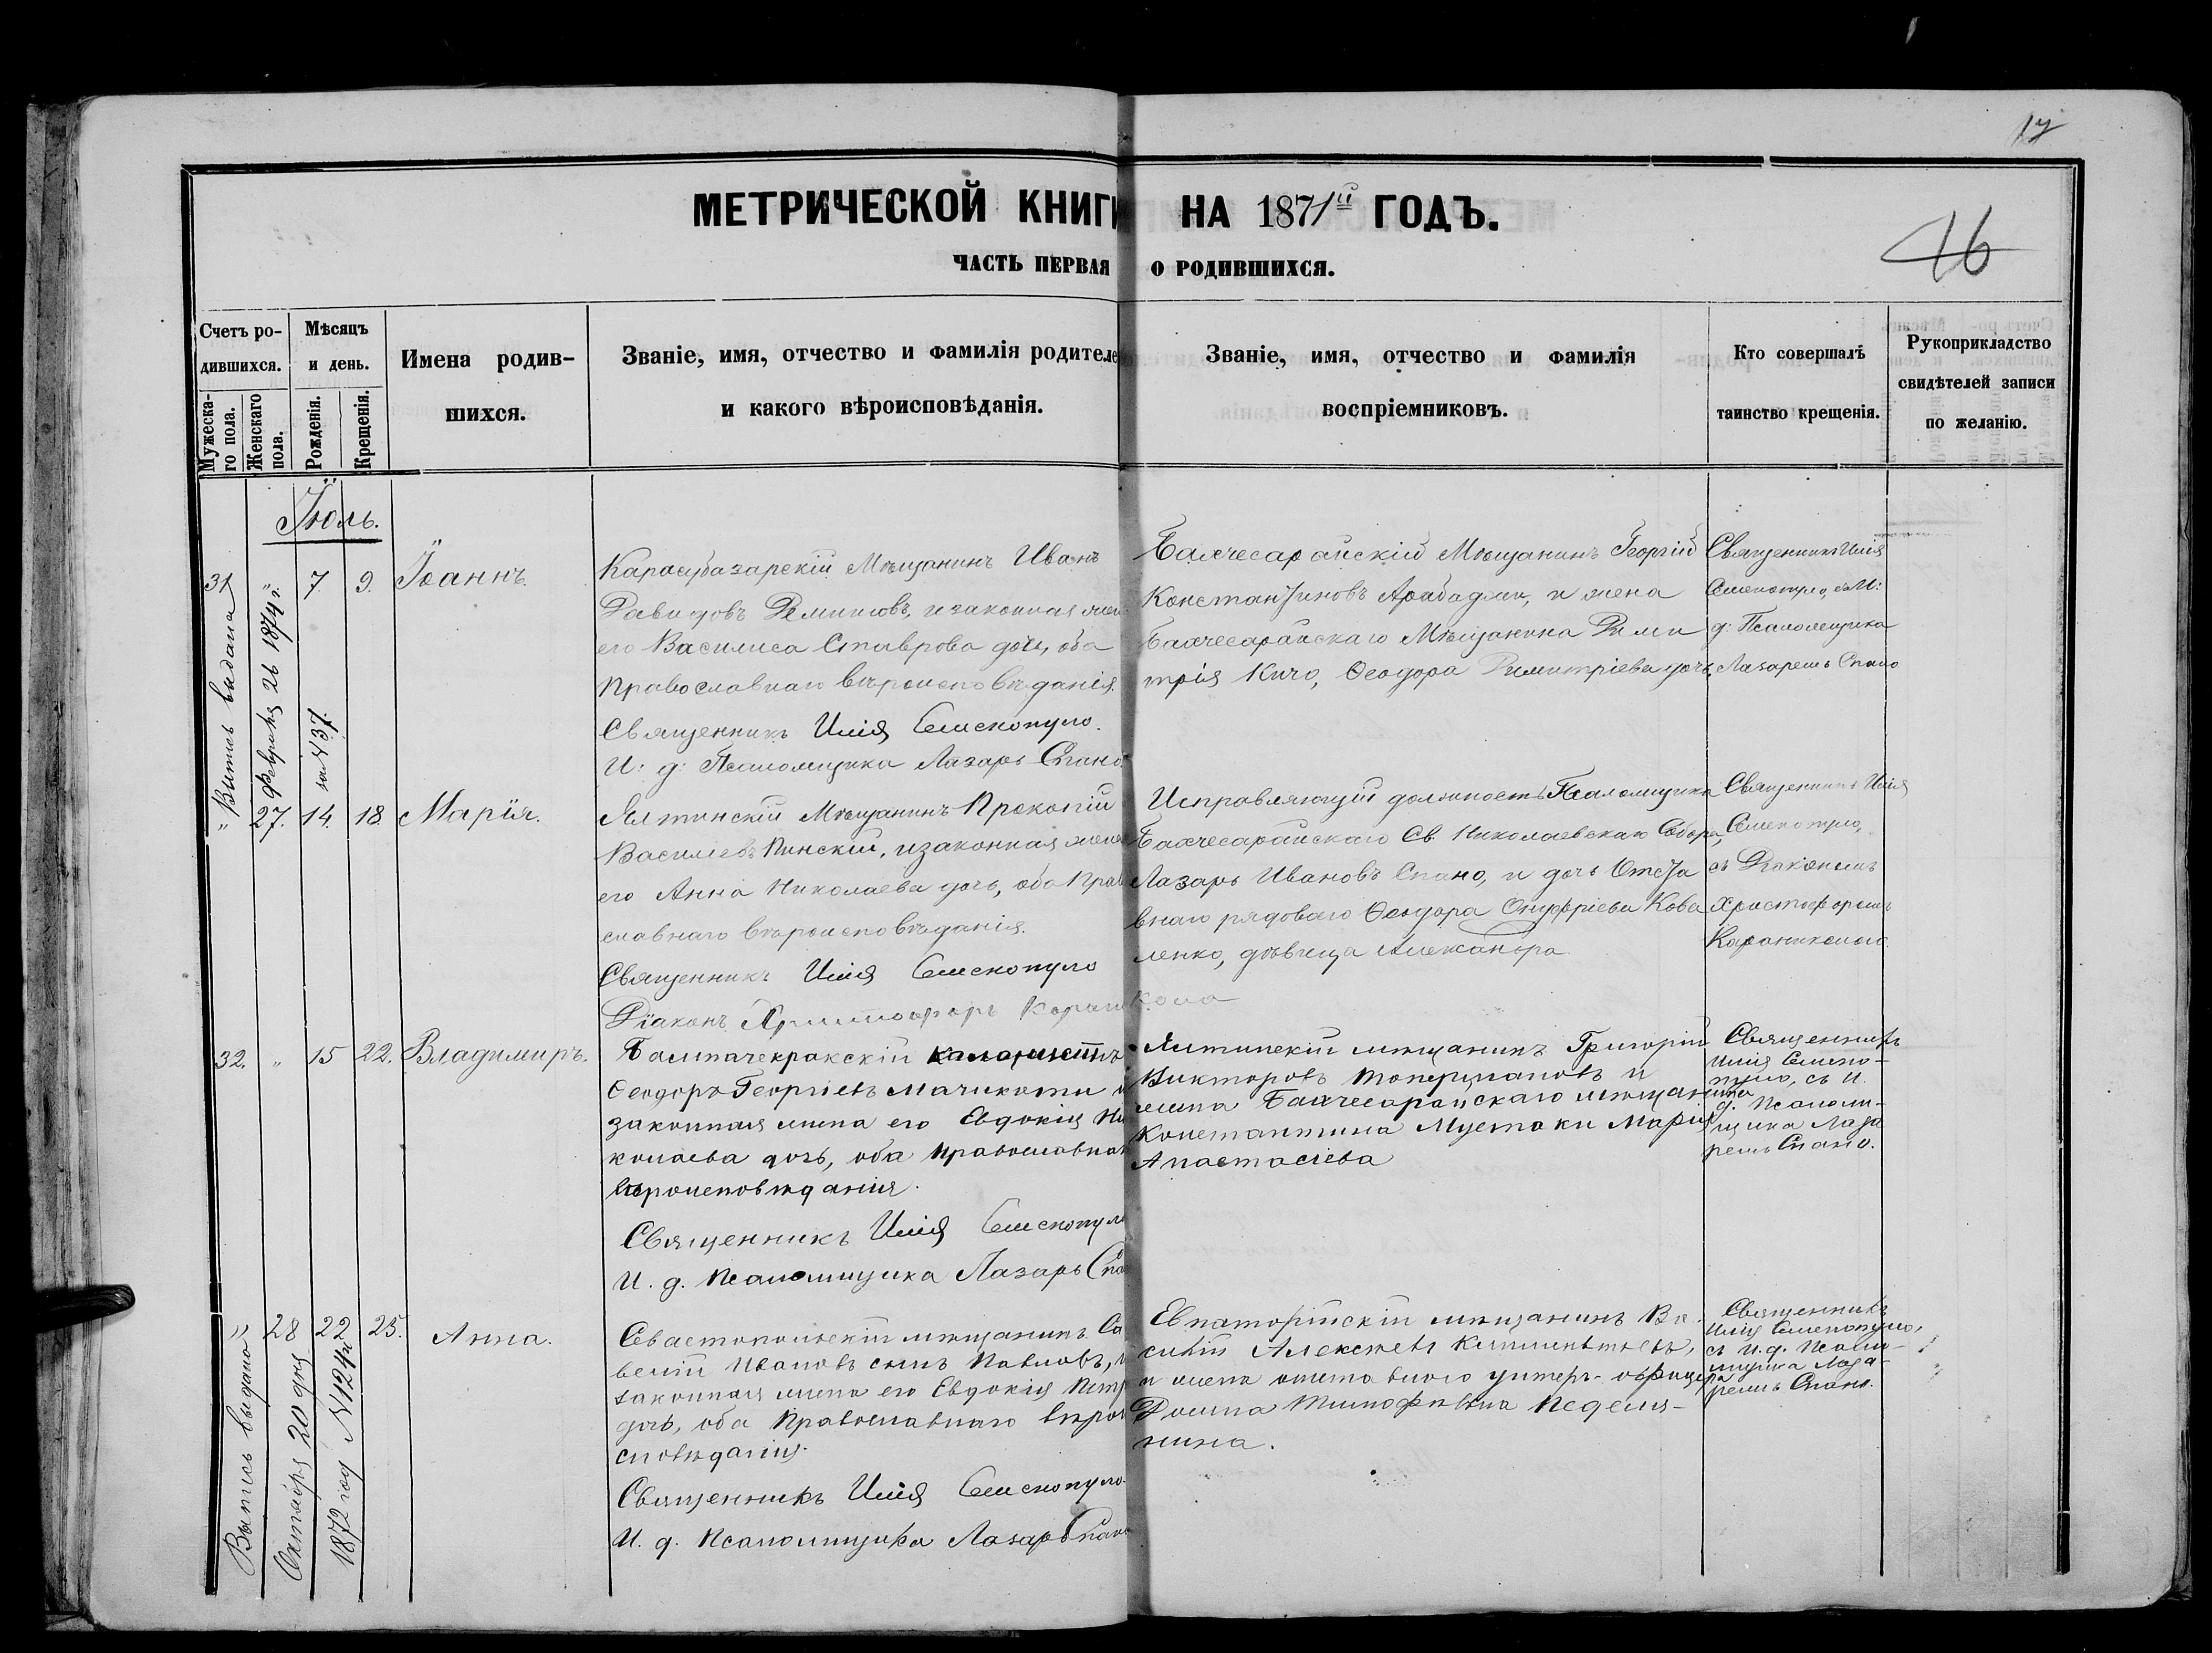 17
МЕТРИЧЕСКОЙ КНИГИ НА 1871й ГОДЪ.
16
ЧАСТЬ ПЕРВАЯ О РОДИВШИХСЯ.
Счетъ ро-
дившихся.
Мужеска-
го пола.
Женскаго
пола.
Мѣсяцъ
и день.
Рожденія.
Крещенія.
Имена родив-
шихся.
Званіе, имя, отчество и фамилія родителе
и какого вѣроисповѣданія.
Званіе, имя, отчество и фамилія
воспріемниковъ.
Кто совершалъ
таинство крещенія.
Рукоприкладство
свидѣтелей записи
по желанію.
Іюль.
31 " 7 9. Іоаннъ.
Выпись выдана
Февраля 26 1874 г.
за № 37.
Карасубазарскій Мѣщанинъ Иванъ
Давидовъ и законная жена
его Василиса Ставрова дочь, оба
Православнаго вѣроисповѣданія.
Священникъ Илія
И: д: Псаломщика Лазарь Спано
Бахчесарайскій Мѣщанинъ Георгій
Константиновъ Арабаджи, и жена
Бахчесарайскаго Мѣщанина Дими
трія Кичо, Ѳеодора Димитріева дочь.
Священникъ Илія
с. И:
д: Псаломщика
Лазаремъ Спано
" 27. 14. 18. Марія.
Ялтинскій Мѣщанинъ Прокопій
Василіевъ Пинскій, и законная жена
его Анна Николаева дочь, оба Право
славнаго вѣроисповѣданія.
Священникъ Илія
Діаконъ Христофоръ Караникола
Исправляющій должность Псаломщика
Бахчесарайскаго Св. Николаевскаго Собора,
Лазарь Ивановъ Спано, и дочь Отста
внаго рядоваго Ѳеодора Онуфріева Кова
ленко, дѣвица Александра
Священникъ Илія
съ Діакономъ
Христофоромъ
Караниколою.
32. " 15 22. Владимиръ.
Ѳеодоръ Георгіевъ Мачикоти и
законная жена его Евдокія Ни
колаева дочь, оба православнаго
вѣроисповѣданія.
Священникъ Илія
И. д. Псаломщика Лазарь Спа
Ялтинскій мѣщанинъ Григорій
Викторовъ Топерцановъ и
жена Бахчесарайскаго мѣщанина
Константина Мустаки Марія
Анастасіева
Священникъ
Илія
съ И.
д. Псалом-
щика Лаза
ремъ Спано.
" 28 22 25. Анна.
Выпись выдана
Октября 20 дня
1872 год № 124
Севастопольскій мѣщанинъ Са
велій Ивановъ сынъ Павловъ, и
законная жена его Евдокія Петр
дочь, оба Православнаго вѣрои
сповѣданія.
Священникъ Илія
И. д. Псаломщика Лазарь Спано
Евпаторійскій мѣщанинъ Ва-
силій Алексѣевъ
и жена отставнаго унтеръ-офицера
Домна Тимофѣевна Неделя-
нина.
Священникъ
Илія
съ И. д. Псало-
мщика Лаза-
ремъ Спано.